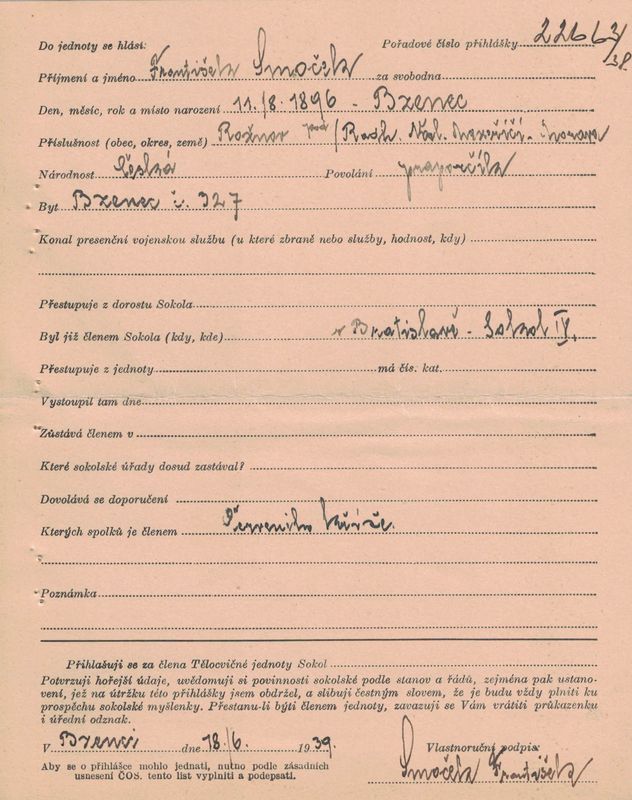 Do jednoty se hlásí: Pořadové číslo přihlášky 22663/38.
Příjmení a jméno Františka Smočela za svobodna
Den, měsíc, rok a místo narození 11./8. 1896 - Bzenec
Příslušnost (obec, okres, země) Rožnov pod/Radh. Val. Meziříčí - Morava
Národnost česká Povolání praporčík
Byt Bzenec č. 327
Konal presenční vojenskou službu (u které zbraně nebo služby, hodnost, kdy)
Přestupuje z dorostu Sokola
Byl již členem Sokola (kdy, kde) v Bratislavě - Sokol IV.
Přestupuje z jednoty má čís. kat.
Vystoupil tam dne
Zůstává členem v
Které sokolské úřady dosud zastával?
Dovolává se doporučení
Kterých spolků je členem Červeného kříže.
Poznámka
Přihlašuji se za člena Tělocvičné jednoty Sokol
Potvrzuji hořejší údaje, uvědomuji si povinnosti sokolské podle stanov a řádů, zejména pak ustano-
vení, jež na útržku této přihlášky jsem obdržel, a slibuji čestným slovem, že je budu vždy plniti ku
prospěchu sokolské myšlenky. Přestanu-li býti členem jednoty, zavazuji se Vám vrátiti průkazenku
i úřední odznak.
V Bzenci dne 18./6. 1939. Vlastnoruční podpis:
Aby se o přihlášce mohlo jednati, nutno podle zásadních
usnesení ČOS. tento list vyplniti a podepsati.
Smočela Františka